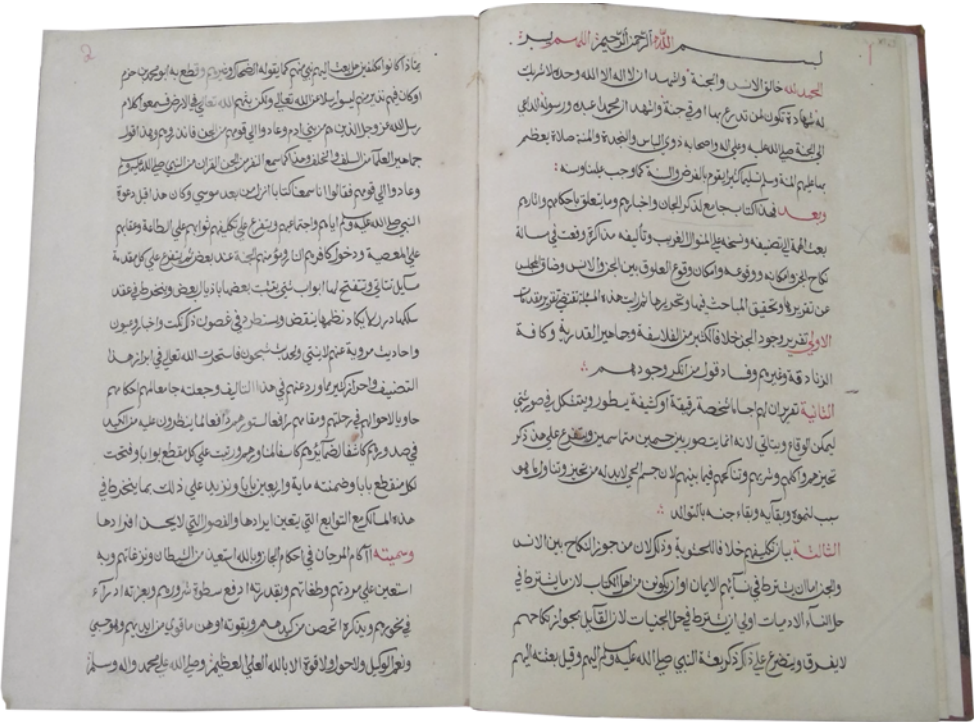 بسم الله الرحمن الرحيم اللهم يسر
الحمد لله خالق الانس والجنة واشهد ان لا اله الا الله وحده لا شريك
له شهادة تكون لمن تدرع بها اوقى جنة واشهد ان محمدا عبده ورسوله الداعي
الى الجنة صلى الله عليه وعلى اله واصحابه ذوي الباس والنجدة والمنة صلاة يعظم
بها عليهم المنة وسلم تسليما كثيرا يقوم بالفرض والسنة كما وجب علينا وسنه
وبعد فهذا كتاب جامع لذكر الجان واخبارهم وما يتعلق باحكامهم واثارهم
بعث الهمة الى تصنيفه ونسجه على المنوال الغريب وتأليفه مذاكرة وقعت في مسالة
نكاح الجن وامكانه ووقوعه وامكان وقوع العلوق بين الجن والانس وضاق المجلس
عن تقريرها وتحقيق المباحث فيها وتحريرها لان هذه المسئلة تقتضي تقرير مقدمات
الاولى تقرير وجود الجن خلافا لكثير من الفلاسفة وجماهير القدرية وكافة
الزنادقة وغيرهم وفساد قول من انكر وجودهم
الثانية تقرير ان لهم اجساما مشخصة رقيقة او كثيفة يتطور ويتشكل في صور شتي
ليمكن الوقاع ويتاتي لانه انما يتصور بين جسمين متماسين ويتفرع على هذا ذكر
تحيزهم واكلهم وشربهم وتناكحهم فيما بينهم لان جسم الحي لابد له من تحيز وتناول ما هو
سبب لنموه وبقائه وبقاء جنسه بالتوالد
الثالثة بيان تكليفهم خلافا للحشوية وذلك لان من جوز النكاح بين الانس
والجن اما ان يشترط في نسائهم الايمان او ان يكون من اهل الكتاب لان ما يشترط في
حل النساء الادميات اولى ان يشترط في حل الجنيات لان القايل بجواز نكاحهم
لا يفرق ويتفرع على ذلك ذكر بعثة النبي صلى الله عليه وسلم اليهم وقبل بعثته اليهم
بماذا كانوا مكلفين هل بعث اليهم نبي منهم كما يقوله الضحاك وغيره وقطع به ابو محمد بن حزم
او كان فيهم نذير منهم ليسوا رسلا عن الله تعالى ولكن بثهم الله تعالى في الارض فسمعوا كلام
رسل الله عز وجل الذين هم من بني ادم وعادوا الى قومهم من الجن فانذروهم وهذا قول
جماهير العلما من السلف والخلف وهذا كما سمع النفر من الجن القران من النبي صلى الله عليه وسلم
وعادوا الى قومهم فقالوا انا سمعنا كتابا انزل من بعد موسى وكان هذا قبل دعوة
النبي صلى الله عليه وسلم اياهم واجتماعهم ويتفرع على تكليفهم ثوابهم على الطاعة وعقابهم
على المعصية ودخول كافرهم النار ومؤمنهم الجنة عند بعض ثم يتفرع على كل مقدمة
مسايل تتاتى وتنفتح لها ابواب شتى تشبث بعضها باذيال البعض وينخرط في عقد
سلكها درر لا يكاد نظمها ينقض ويستطرد في غصون ذلك نكت واخبار وعيون
واحاديث مروية عنهم لا تنتهي والحديث شجون فاستخرت الله تعالى في ابراز هذا
التصنيف واحراز كثير مما ورد عنهم في هذا التاليف وجعلته جامعا لمهم احكامهم
حاويا لاحوالهم في رحلتهم ومقامهم رافعا لستورهم دافعا لما ينطوون عليه من الكيد
في صدورهم كاشفا لضمائرهم ورتبت على كل مقطع بوابا وفتحت
لكل منقطع بابا وضمنته ماية واربعين بابا ونزيد على ذلك بما ينخرط في
هذه المسالك مع التوابع التي يتعين ايرادها والفصول التي لا يحسن افرادها
وسميته آكام المرجان في احكام الجان وبالله استعيذ من الشيطان ونزغاتهم وبه
استعين على مردتهم وطغاتهم وبقدرته ادفع سطوة شرورهم وبعزته ادراء
في نحورهم وبذكره اتحصن من كيدهم وبقوته اوهن ما قوي من ايديهم وهو حسبي
ونعم الوكيل ولا حول ولا قوة الا بالله العلي العظيم وصلى الله على محمد واله وسلم